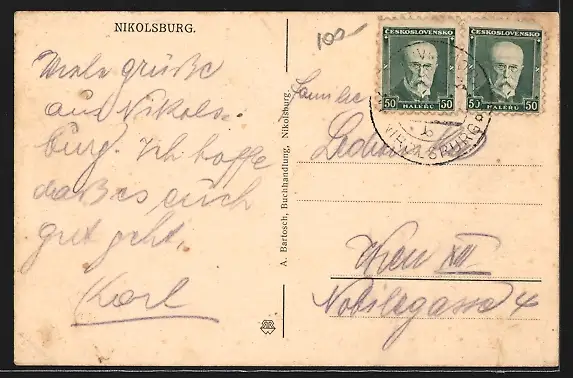 NIKOLSBURG.
Viele grüße
aus Nikols-
burg. Ich hoffe
daß es euch
gut geht.
Karl
A. Bartosch, Buchhandlung, Nikolsburg.
100-
ČESKOSLOVENSKO
50 HALÉŘŮ 50
ČESKOSLOVENSKO
50 HALÉŘŮ 50
Familie
Wien XII
Nobilegasse 4